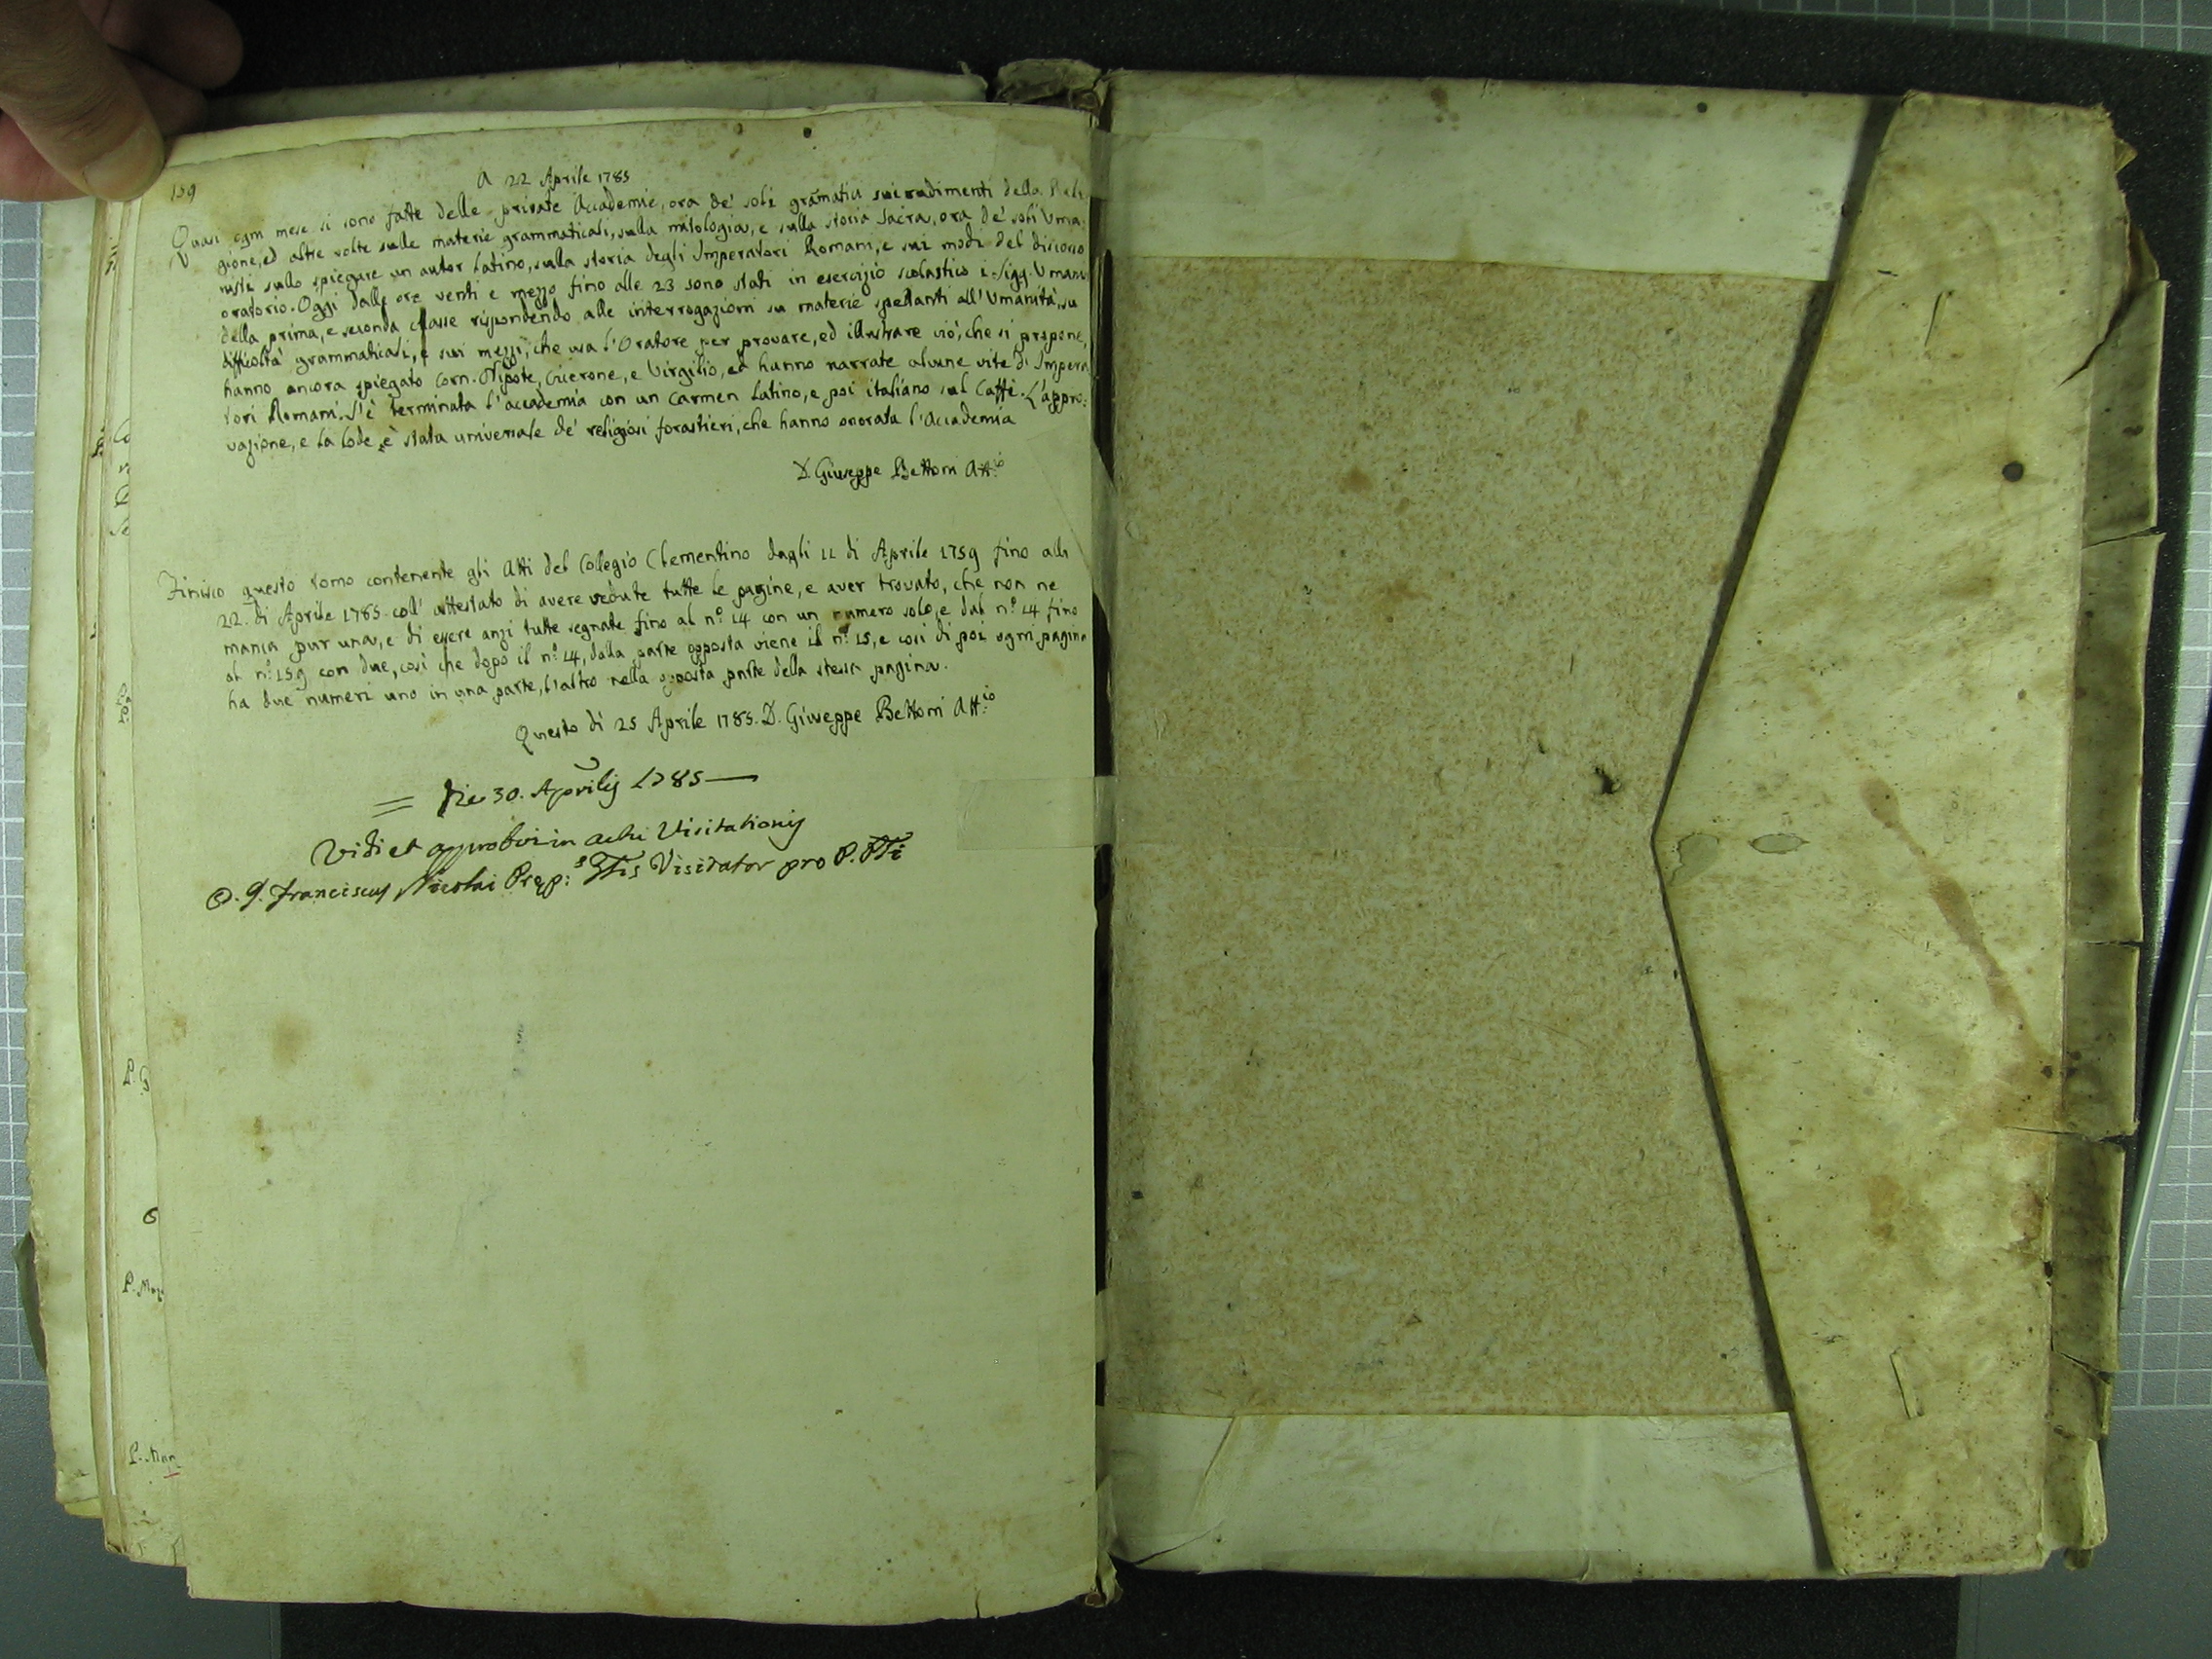 159
A 22 Aprile 1785
Quasi ogni mese si sono fatte delle private Accademie, ora de' soli gramatici sui rudimenti della Reli-
gione, ed altre volte sulle materie grammaticali, sulla mitologia, e sulla storia sacra, ora de' soli Uma-
nisti sullo spiegare un autor Latino, sulla storia degli Imperatori Romani, e sui modi del discorso
oratorio. Oggi dalle ore venti e mezzo fino alle 23 sono stati in esercizio scolastico i Sigg. Umani
della prima, e seconda classe rispondendo alle interrogazioni su materie spettanti all'Umanità, su
difficoltà grammaticali, e sui mezzi, che usa l'Oratore per provare, ed illustrare ciò, che si propone,
hanno ancora spiegato Corn. Nipote, Cicerone, e Virgilio, ed hanno narrate alcune vite d'Impera
tori Romani. S'è terminata l'accademia con un Carmen Latino, e poi italiano sul Caffè. L'appro:
vazione, e la lode è stata universale de' religiosi forastieri, che hanno onorata l'Accademia
D. Giuseppe Bettoni Att:io
Finisco questo tomo contenente gli Atti del Collegio Clementino dagli 11 di Aprile 1759 fino alli
22. di Aprile 1785. coll' attestato di avere vedute tutte le pagine, e aver trovato, che non ne
manca pur una, e di essere anzi tutte segnate fino al n.º 14 con un numero solo, e dal n.º 14 fino
al n.º 159 con due, così che dopo il n.º 14, dalla parte opposta viene il n.º 15, e così di poi ogni pagina
ha due numeri uno in una parte, l'altro nella opposta parte della stessa pagina.
Questo dì 25 Aprile 1785. D. Giuseppe Bettoni Att:io
= Die 30. Aprilis 1785 —
Vidi et approbavi in actu Visitationis
D. Franciscus Nicolai Prep: Visitator pro P.
P. G
P. Mar
P. Man